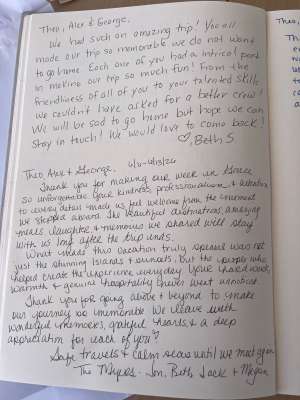 Theo, Alex & George,
We had such an amazing trip! You all
made our trip so memorable we do not want
to go home. Each one of you had a intrical part
in making our trip so much fun! From the
friendliness of all of you to your talented skills,
we couldn't have asked for a better crew!
We will be sad to go home but hope we can
stay in touch! We would love to come back!
♡, Beth S
Theo, Alex & George,
Thank you for making our week in Greece
so unforgettable. Your kindness, professionalism, & attention
to every detail made us feel welcome from the moment
we stepped aboard. The beautiful destinations, amazing
meals, laughter, & memories we shared will stay
with us long after the trip ends.
What made this vacation truly special was not
just the stunning islands & sunsets, but the people who
helped create the experience everyday. Your hard work,
warmth & genuine hospitality never went unnoticed.
Thank you for going above & beyond to make
our journey so memorable. We leave with
wonderful memories, grateful hearts, & a deep
appreciation for each of you♡
Safe travels & calm seas until we meet again
The - Jon, Beth, Jack & Megan
Theo,